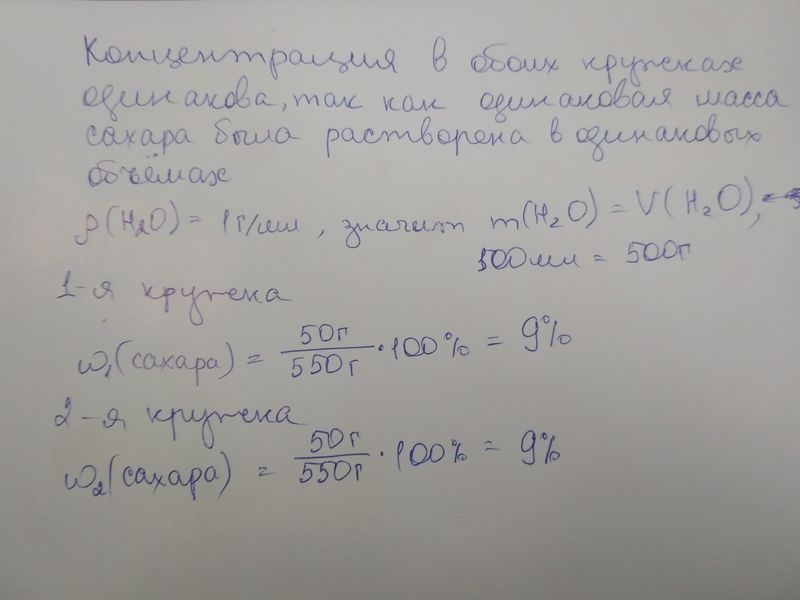 Концентрация в обоих кружках
одинакова, так как одинаковая масса
сахара была растворена в одинаковых
объёмах
ρ(H₂O) = 1г/мл, значит m(H₂O) = V(H₂O),
500мл = 500г
1-я кружка
ω₁(сахара) = 50г/550г · 100% = 9%
2-я кружка
ω₂(сахара) = 50г/550г · 100% = 9%